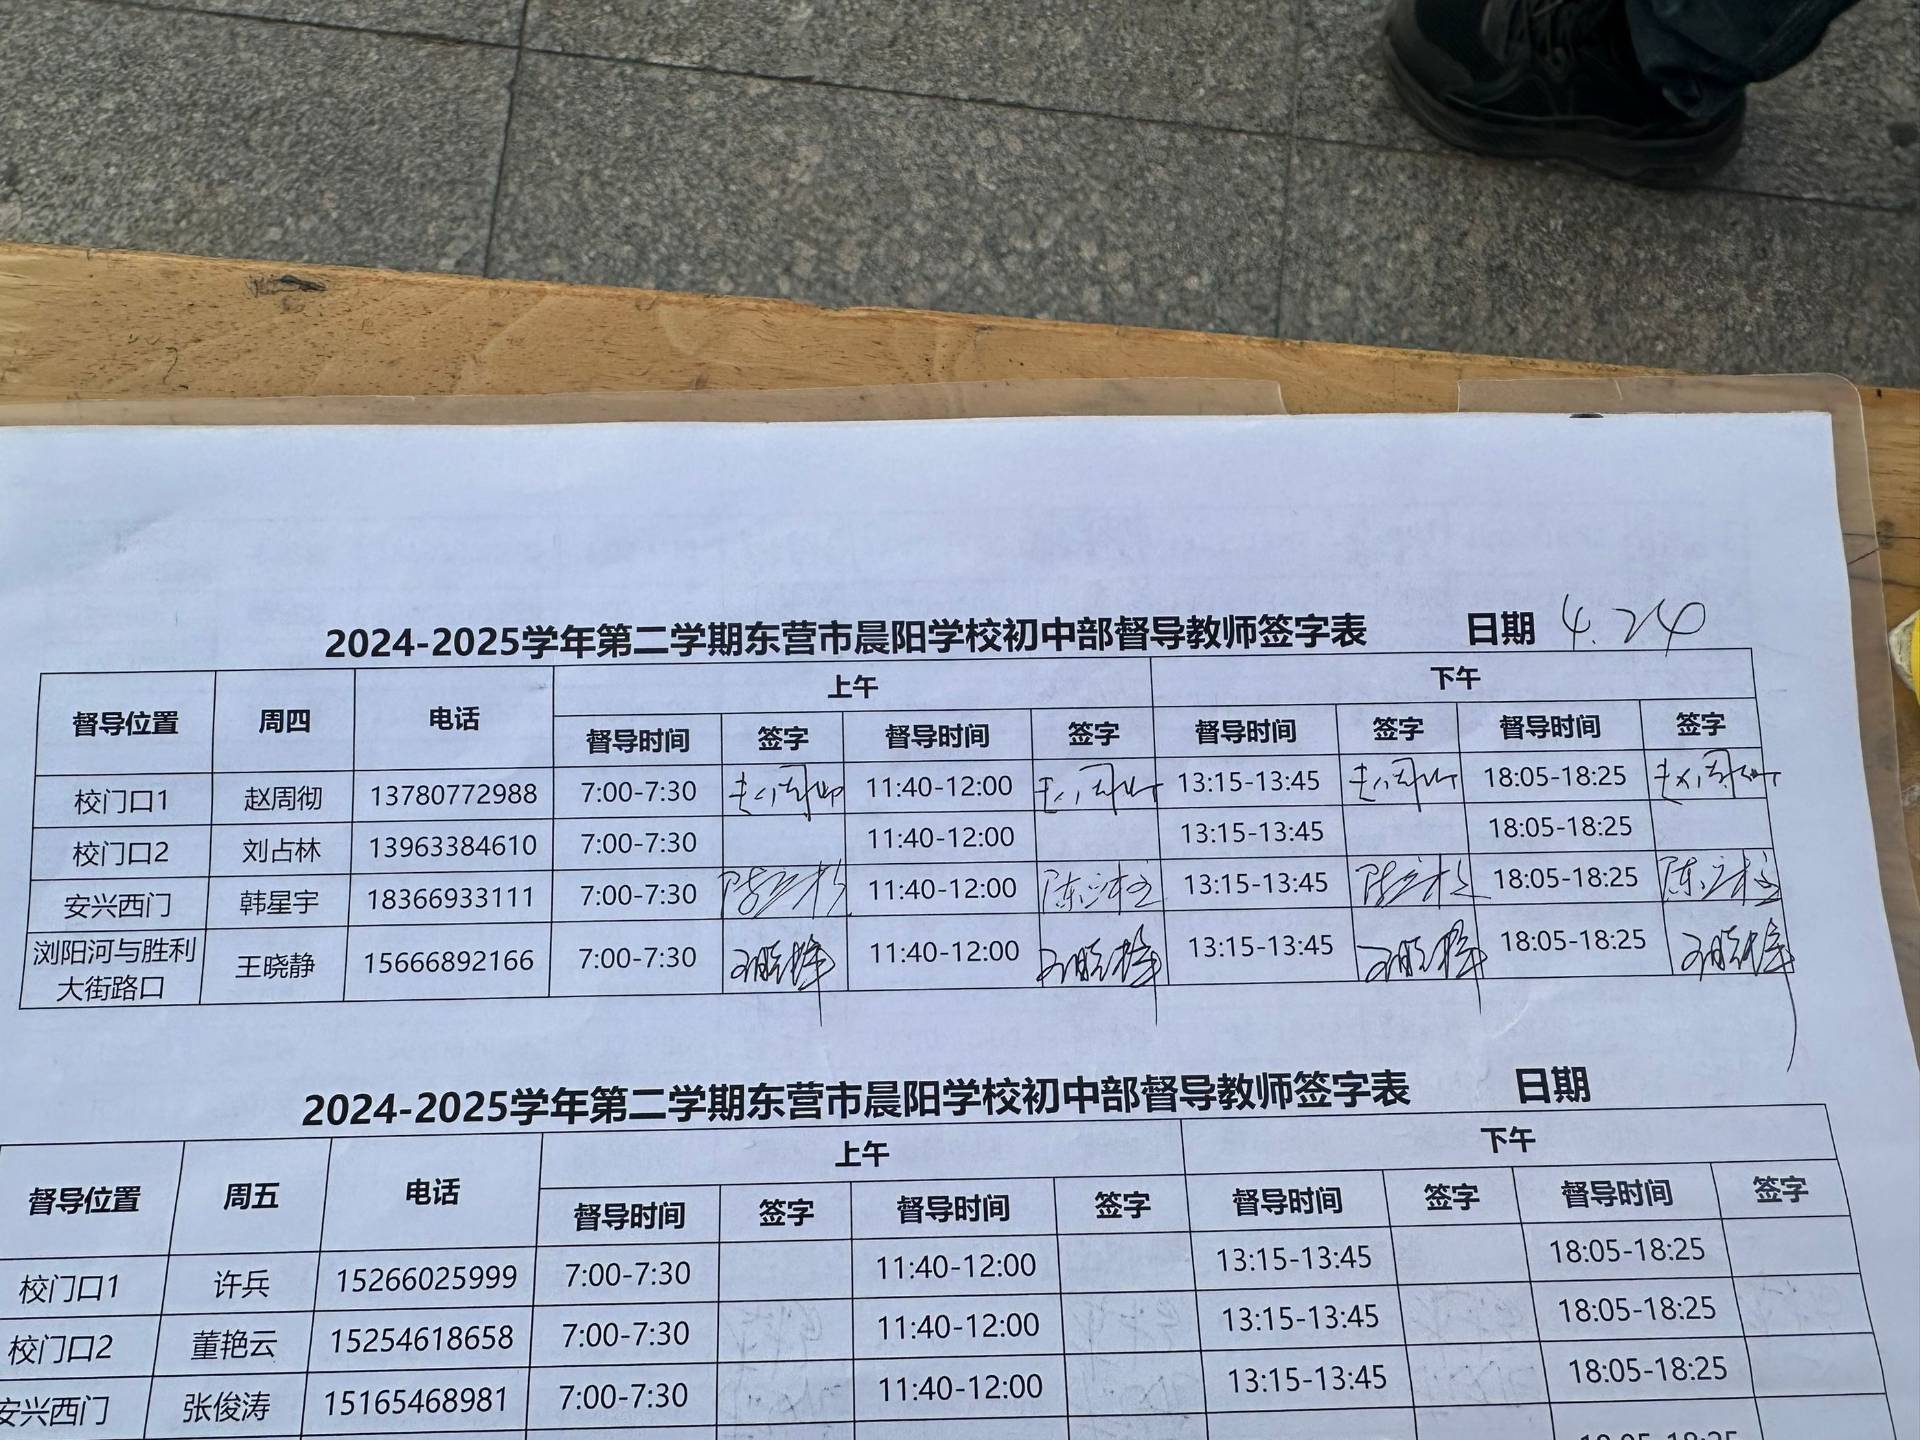 2024-2025学年第二学期东营市晨阳学校初中部督导教师签字表 日期 4.24
督导位置 周四 电话 上午 下午
督导时间 签字 督导时间 签字 督导时间 签字 督导时间 签字
校门口1 赵周彻 13780772988 7:00-7:30 11:40-12:00 13:15-13:45 18:05-18:25
校门口2 刘占林 13963384610 7:00-7:30 11:40-12:00 13:15-13:45 18:05-18:25
安兴西门 韩星宇 18366933111 7:00-7:30 11:40-12:00 13:15-13:45 18:05-18:25
浏阳河与胜利
大街路口 王晓静 15666892166 7:00-7:30 11:40-12:00 13:15-13:45 18:05-18:25
2024-2025学年第二学期东营市晨阳学校初中部督导教师签字表 日期
督导位置 周五 电话 上午 下午
督导时间 签字 督导时间 签字 督导时间 签字 督导时间 签字
校门口1 许兵 15266025999 7:00-7:30 11:40-12:00 13:15-13:45 18:05-18:25
校门口2 董艳云 15254618658 7:00-7:30 11:40-12:00 13:15-13:45 18:05-18:25
安兴西门 张俊涛 15165468981 7:00-7:30 11:40-12:00 13:15-13:45 18:05-18:25